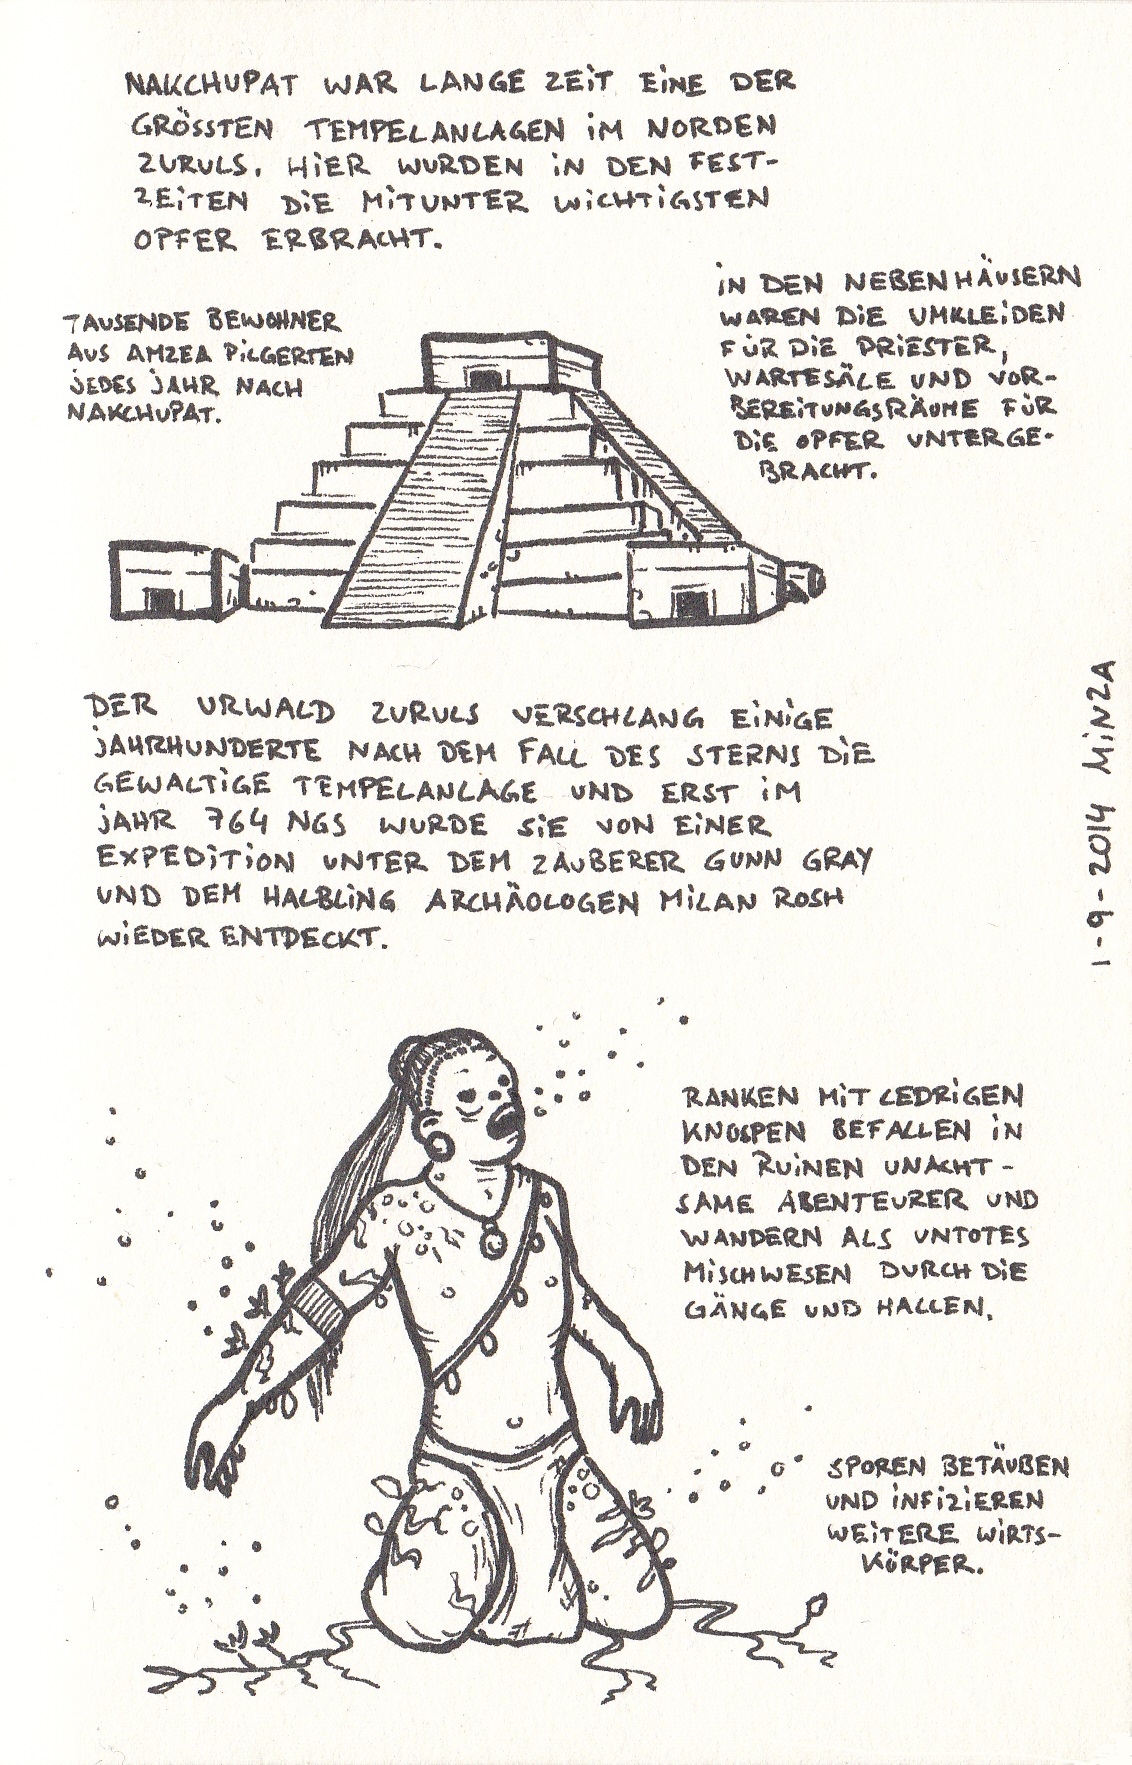 NAKCHUPAT WAR LANGE ZEIT EINE DER
GRÖSSTEN TEMPELANLAGEN IM NORDEN
ZURULS. HIER WURDEN IN DEN FEST-
ZEITEN DIE MITUNTER WICHTIGSTEN
OPFER ERBRACHT.
TAUSENDE BEWOHNER
AUS AMZEA PILGERTEN
JEDES JAHR NACH
NAKCHUPAT.
IN DEN NEBENHÄUSERN
WAREN DIE UMKLEIDEN
FÜR DIE PRIESTER,
WARTESÄLE UND VOR-
BEREITUNGSRÄUME FÜR
DIE OPFER UNTERGE-
BRACHT.
DER URWALD ZURULS VERSCHLANG EINIGE
JAHRHUNDERTE NACH DEM FALL DES STERNS DIE
GEWALTIGE TEMPELANLAGE UND ERST IM
JAHR 764 NGS WURDE SIE VON EINER
EXPEDITION UNTER DEM ZAUBERER GUNN GRAY
UND DEM HALBLING ARCHÄOLOGEN MILAN ROSH
WIEDER ENTDECKT.
1-9-2014 MINZA
RANKEN MIT LEDRIGEN
KNOSPEN BEFALLEN IN
DEN RUINEN UNACHT-
SAME ABENTEURER UND
WANDERN ALS UNTOTES
MISCHWESEN DURCH DIE
GÄNGE UND HALLEN.
SPOREN BETÄUBEN
UND INFIZIEREN
WEITERE WIRTS-
KÖRPER.